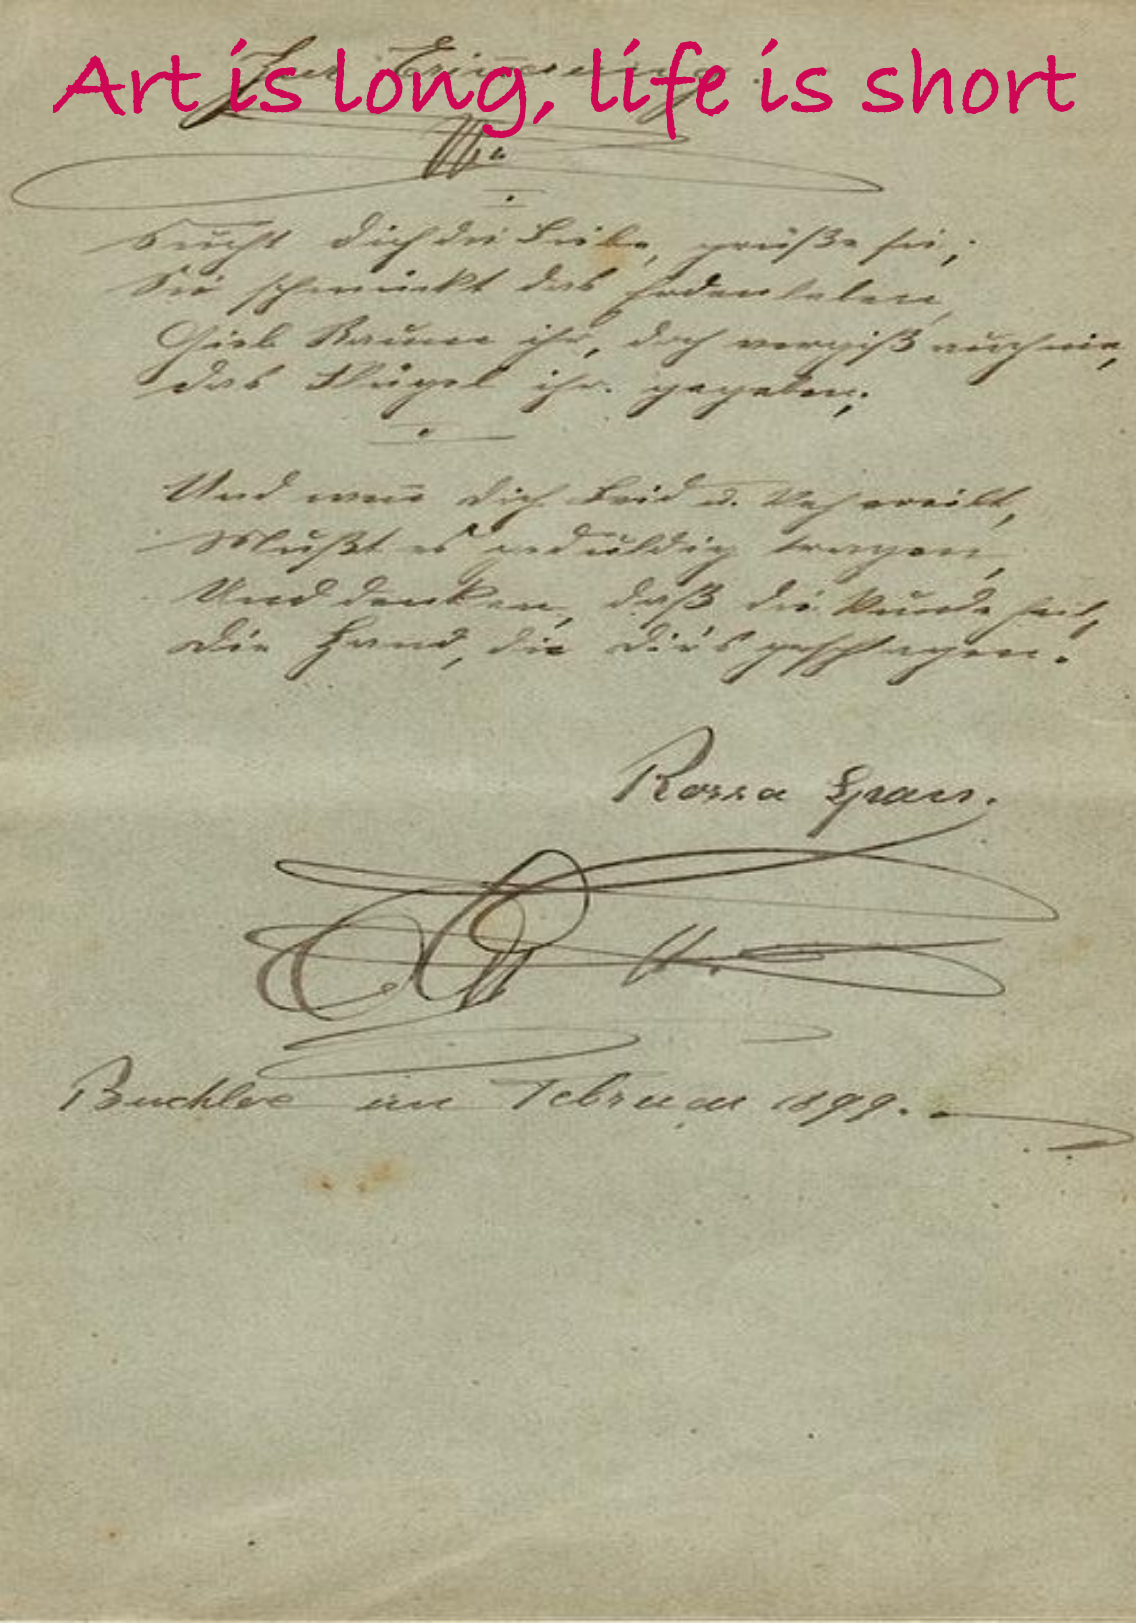 Art is long, life is short
Zur Erinnerung.
Sucht dich die Liebe, grüße sie,;
Sie schmückt das Erdenleben,
Gieb Raum ihr, doch vergiß auch nie,
das Flügel ihr gegeben;
Und wenn dich Leid u. Weh ereilt,
Mußt es geduldig tragen,
Und denken, daß die Wunde heilt,
Die Hand, die dir's geschlagen.
Rossa
Buchloe im Februar 1899.